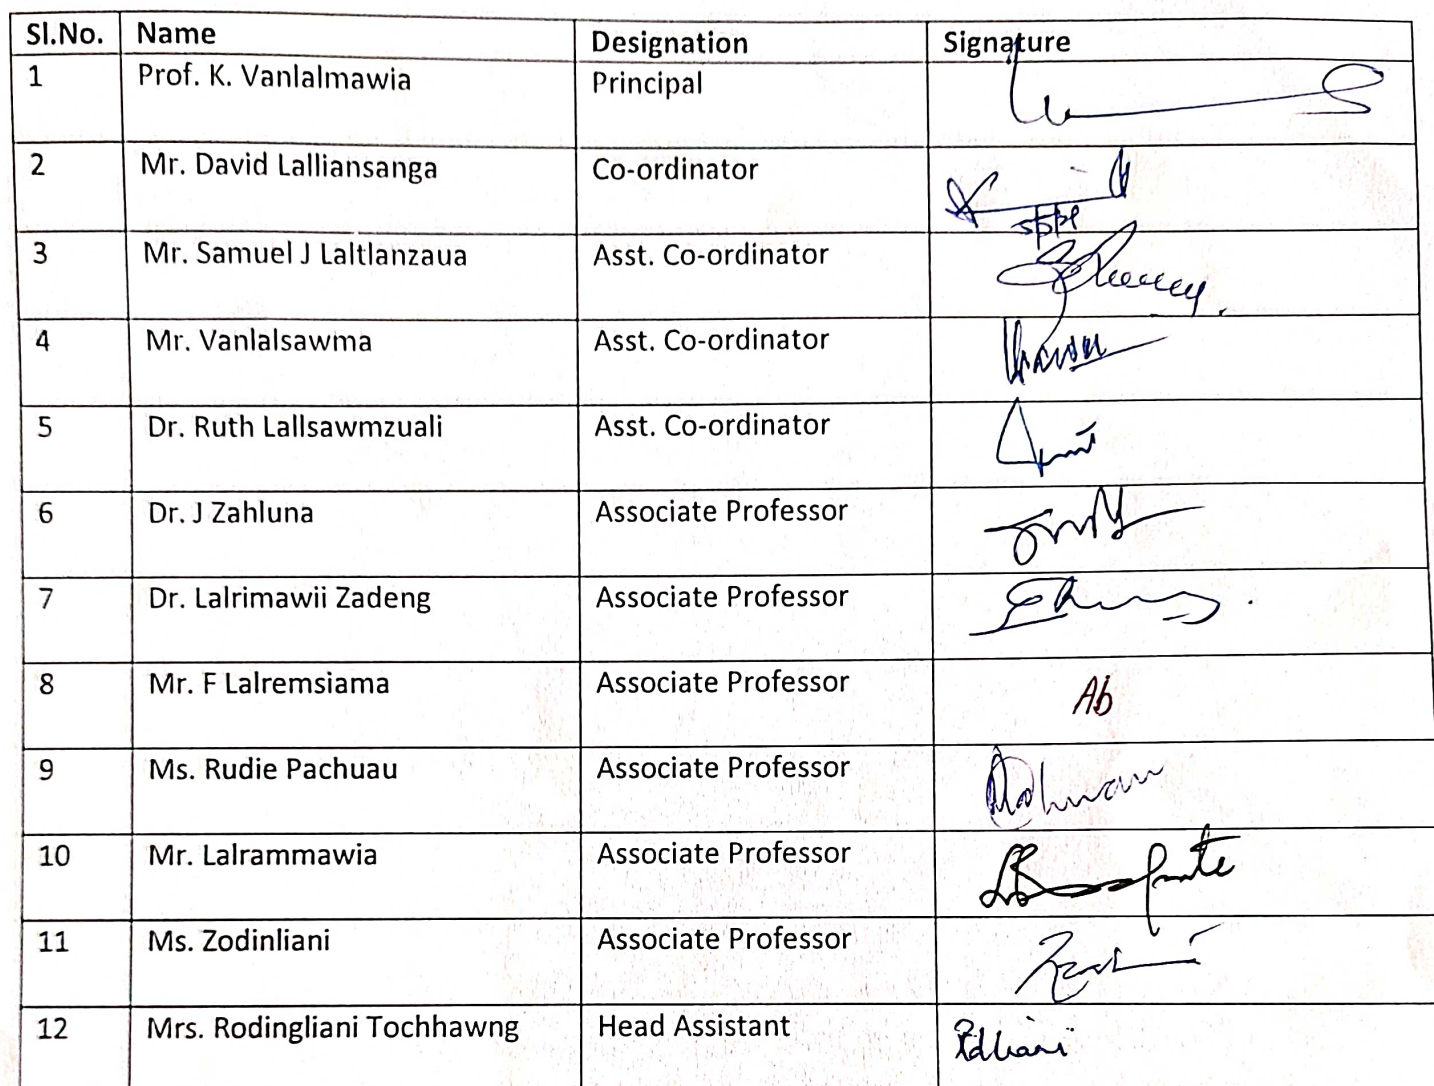 Sl.No. Name Designation Signature
1 Prof. K. Vanlalmawia Principal
2 Mr. David Lalliansanga Co-ordinator
3 Mr. Samuel J Laltlanzaua Asst. Co-ordinator
4 Mr. Vanlalsawma Asst. Co-ordinator
5 Dr. Ruth Lallsawmzuali Asst. Co-ordinator
6 Dr. J Zahluna Associate Professor
7 Dr. Lalrimawii Zadeng Associate Professor
8 Mr. F Lalremsiama Associate Professor Ab
9 Ms. Rudie Pachuau Associate Professor
10 Mr. Lalrammawia Associate Professor
11 Ms. Zodinliani Associate Professor
12 Mrs. Rodingliani Tochhawng Head Assistant